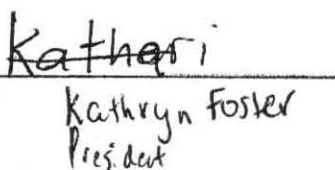 Kathari
Kathryn Foster
President